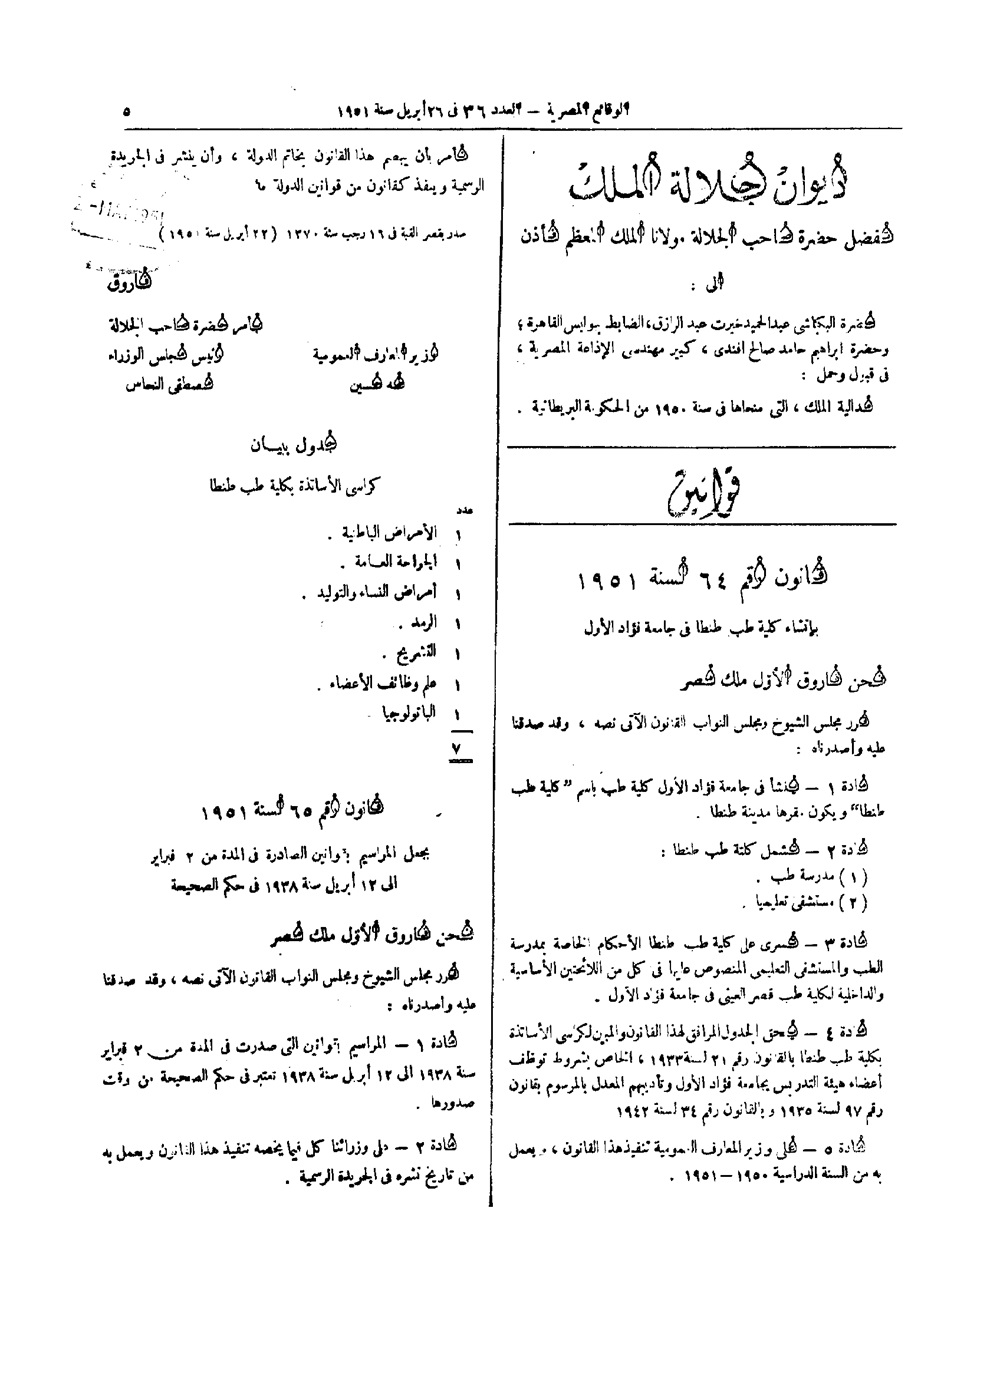 الوقائع المصرية — العدد ٣٦ فى ٢٦ أبريل سنة ١٩٥١
٥
ديوان جلالة الملك
تفضل حضرة صاحب الجلالة مولانا الملك المعظم فأذن
الى :
لحضرة البكباشى عبد الحميد خيرت عبد الرازق، الضابط ببوليس القاهرة ؛
وحضرة ابراهيم حامد صالح افندى ، كبير مهندسى الإذاعة المصرية ،
فى قبول وحمل :
مدالية الملك ، التى منحاها فى سنة ١٩٥٠ من الحكومة البريطانية .
قوانين
قانون رقم ٦٤ لسنة ١٩٥١
بإنشاء كلية طب طنطا فى جامعة فؤاد الأول
نحن فاروق الأول ملك مصر
قرر مجلس الشيوخ ومجلس النواب القانون الآتى نصه ، وقد صدقنا
عليه وأصدرناه :
مادة ١ — ينشأ فى جامعة فؤاد الأول كلية طب باسم "كلية طب
طنطا" ويكون مقرها مدينة طنطا .
مادة ٢ — تشمل كلية طب طنطا :
( ١ ) مدرسة طب .
( ٢ ) مستشفى تعليميا .
مادة ٣ — تسرى على كلية طب طنطا الأحكام الخاصة بمدرسة
الطب والمستشفى التعليمى المنصوص عليها فى كل من اللائحتين الأساسية
والداخلية لكلية طب قصر العينى فى جامعة فؤاد الأول .
مادة ٤ — يلحق الجدول المرافق لهذا القانون والمبين لكراسى الأساتذة
بكلية طب طنطا بالقانون رقم ٢١ لسنة ١٩٣٣ ، الخاص بشروط توظف
أعضاء هيئة التدريس بجامعة فؤاد الأول وتأديبهم المعدل بالمرسوم بقانون
رقم ٩٧ لسنة ١٩٣٥ وبالقانون رقم ٣٤ لسنة ١٩٤٢
مادة ٥ — على وزير المعارف العمومية تنفيذ هذا القانون ، ويعمل
به من السنة الدراسية ١٩٥٠ — ١٩٥١ .
نأمر بأن يبصم هذا القانون بخاتم الدولة ، وأن ينشر فى الجريدة
الرسمية وينفذ كقانون من قوانين الدولة
صدر بقصر القبة فى ١٦ رجب سنة ١٣٧٠ (٢٢ أبريل سنة ١٩٥١)
فاروق
بأمر حضرة صاحب الجلالة
وزير المعارف العمومية رئيس مجلس الوزراء
طه حسين مصطفى النحاس
جدول ببيان
كراسى الأساتذة بكلية طب طنطا
عدد
١ الأمراض الباطنية .
١ الجراحة العامة .
١ أمراض النساء والتوليد .
١ الرمد .
١ التشريح .
١ علم وظائف الأعضاء .
١ الباثولوجيا
٧
قانون رقم ٦٥ لسنة ١٩٥١
بجعل المراسيم بقوانين الصادرة فى المدة من ٢ فبراير
الى ١٢ أبريل سنة ١٩٣٨ فى حكم الصحيحة
نحن فاروق الأول ملك مصر
قرر مجلس الشيوخ ومجلس النواب القانون الآتى نصه ، وقد صدقنا
عليه وأصدرناه :
مادة ١ — المراسيم بقوانين التى صدرت فى المدة من ٢ فبراير
سنة ١٩٣٨ الى ١٢ أبريل سنة ١٩٣٨ تعتبر فى حكم الصحيحة من وقت
صدورها .
مادة ٢ — على وزرائنا كل فيما يخصه تنفيذ هذا القانون ويعمل به
من تاريخ نشره فى الجريدة الرسمية .